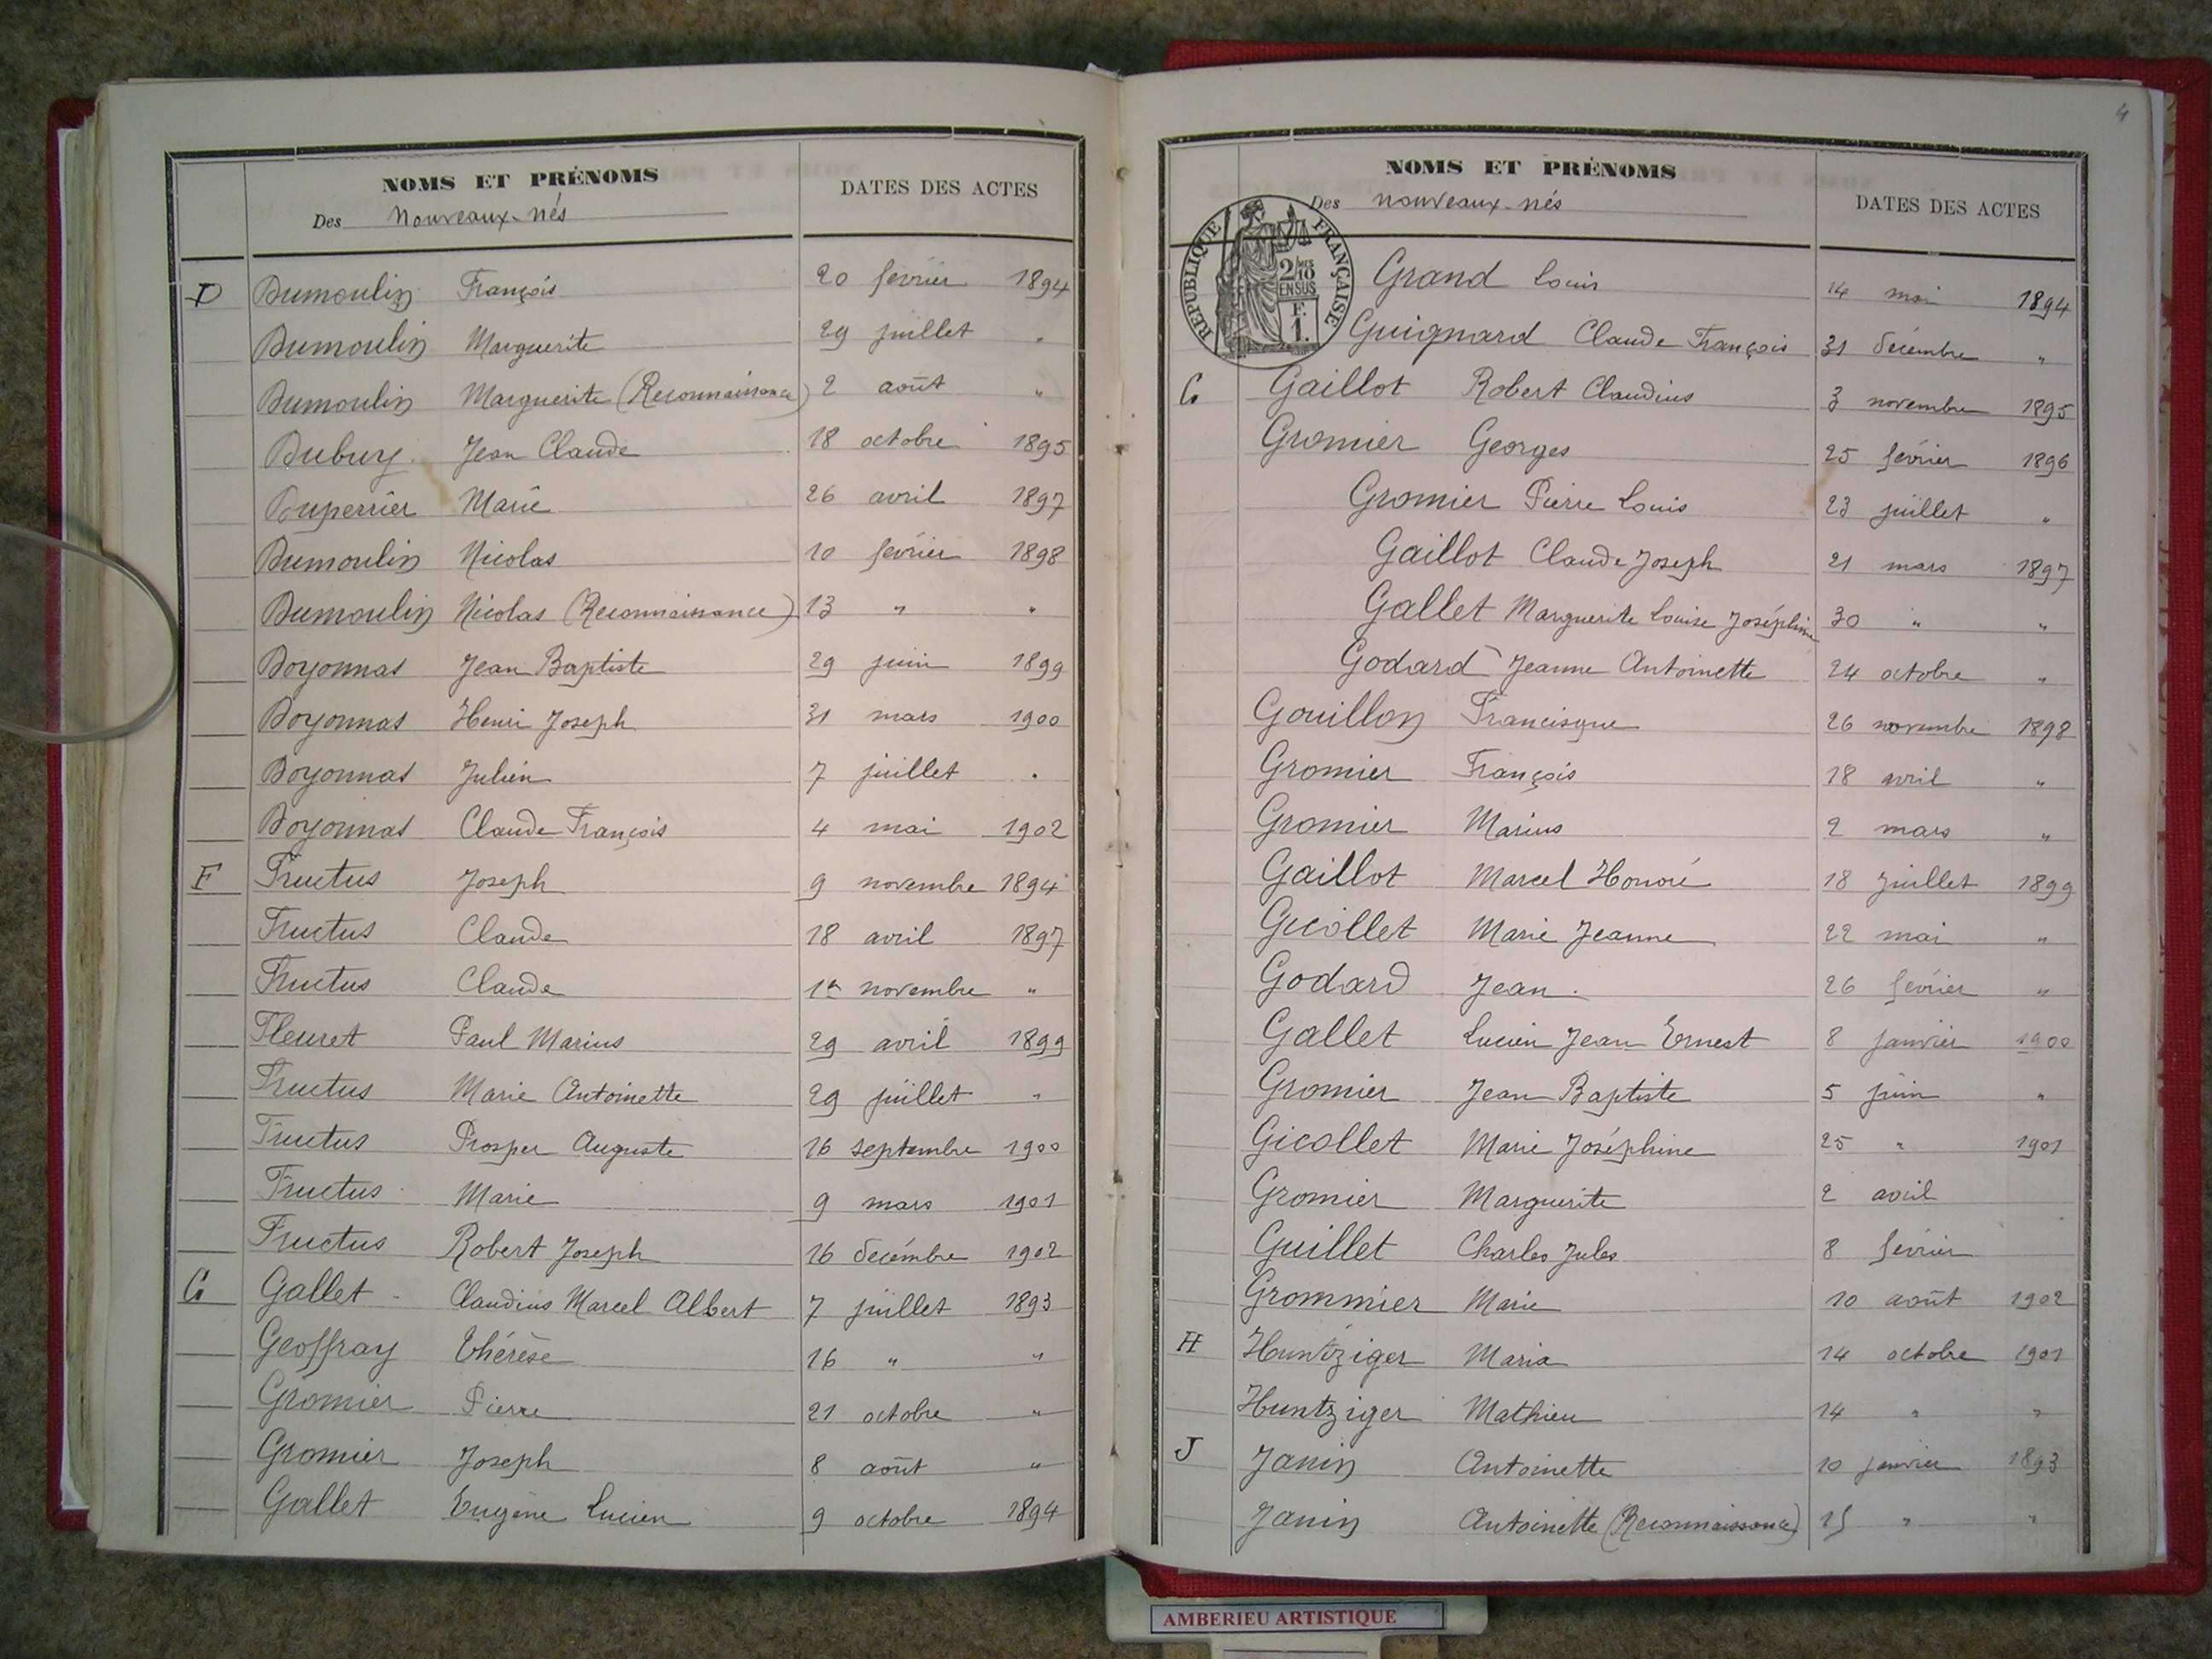 NOMS ET PRÉNOMS
Des Nouveaux-nés
DATES DES ACTES
D Dumoulin François 20 février 1894
Dumoulin Marguerite 29 juillet "
Dumoulin Marguerite (Reconnaissance) 2 août "
Dubuy Jean Claude 18 octobre 1895
Duperrier Marie 26 avril 1897
Dumoulin Nicolas 10 février 1898
Dumoulin Nicolas (Reconnaissance) 13 " "
Doyonnas Jean Baptiste 29 juin 1899
Doyonnas Henri Joseph 31 mars 1900
Doyonnas Julien 7 juillet "
Doyonnas Claude François 4 mai 1902
F Fructus Joseph 9 novembre 1894
Fructus Claude 18 avril 1897
Fructus Claude 1er novembre "
Fleuret Paul Marius 29 avril 1899
Fructus Marie Antoinette 29 juillet "
Fructus Prosper Auguste 16 septembre 1900
Fructus Marie 9 mars 1901
Fructus Robert Joseph 16 décembre 1902
G Gallet Claudius Marcel Albert 7 juillet 1893
Geoffray Thérèse 16 " "
Gromier Pierre 21 octobre "
Gromier Joseph 8 août "
Gallet Eugène Lucien 9 octobre 1894
4
NOMS ET PRÉNOMS
Des nouveaux-nés
DATES DES ACTES
RÉPUBLIQUE FRANÇAISE
2/10 MES
EN SUS
F.
1.
Grand Louis 14 mai 1894
Guignard Claude François 31 décembre "
G Gaillot Robert Claudius 3 novembre 1895
Gromier Georges 25 février 1896
Gromier Pierre Louis 23 juillet "
Gaillot Claude Joseph 21 mars 1897
Gallet Marguerite Louise Joséphine 30 " "
Godard Jeanne Antoinette 24 octobre "
Gouillon Francisque 26 novembre 1898
Gromier François 18 avril "
Gromier Marius 2 mars "
Gaillot Marcel Honoré 18 juillet 1899
Gicollet Marie Jeanne 22 mai "
Godard Jean 26 février "
Gallet Lucien Jean Ernest 8 janvier 1900
Gromier Jean Baptiste 5 juin "
Gicollet Marie Joséphine 25 " 1901
Gromier Marguerite 2 avril
Guillet Charles Jules 8 février
Grommier Marie 10 août 1902
H Huntziger Maria 14 octobre 1901
Huntziger Mathieu 14 " "
J Janin Antoinette 10 janvier 1893
Janin Antoinette (Reconnaissance) 15 " "
AMBERIEU ARTISTIQUE